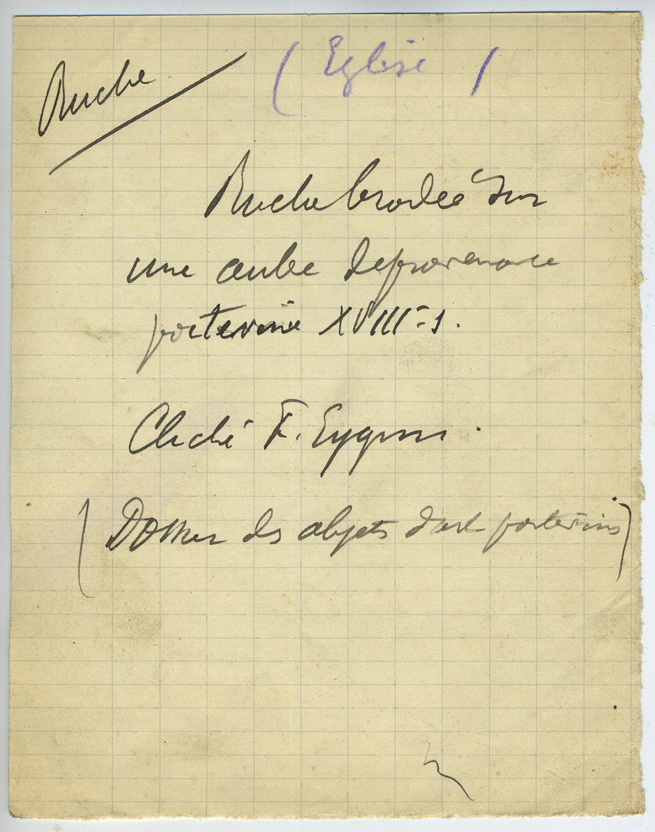 Ruche
( Eglise )
Ruche brodée sur
une aube de provenance
poitevine XVIIIe s.
Cliché F. Eygun.
( Dossier des objets d'art poitevins )